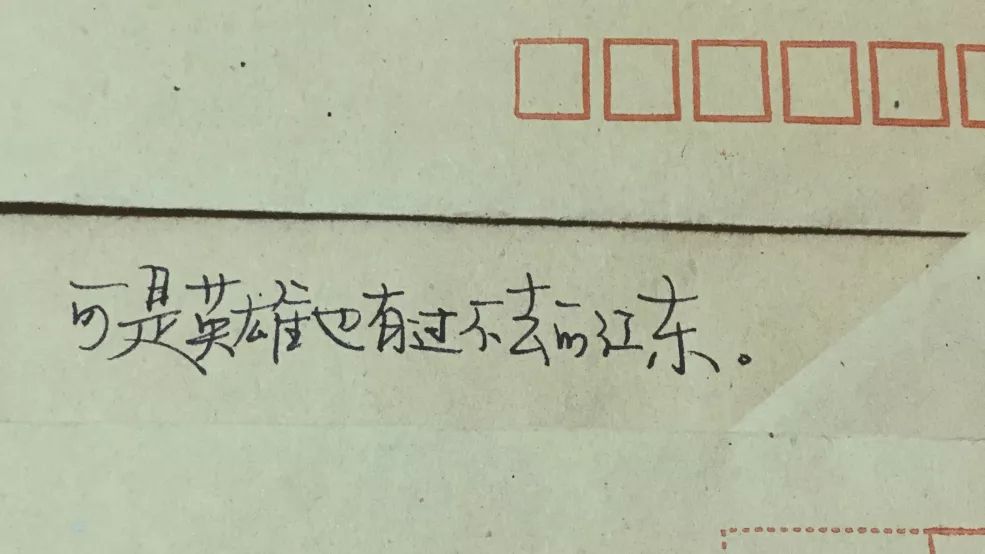 可是英雄也有过不去的江东。